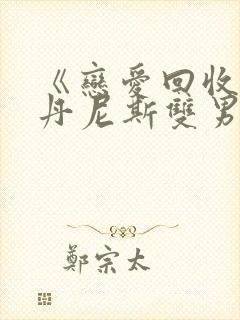 《戀愛回收
丹尼斯雙男
鄭宗太